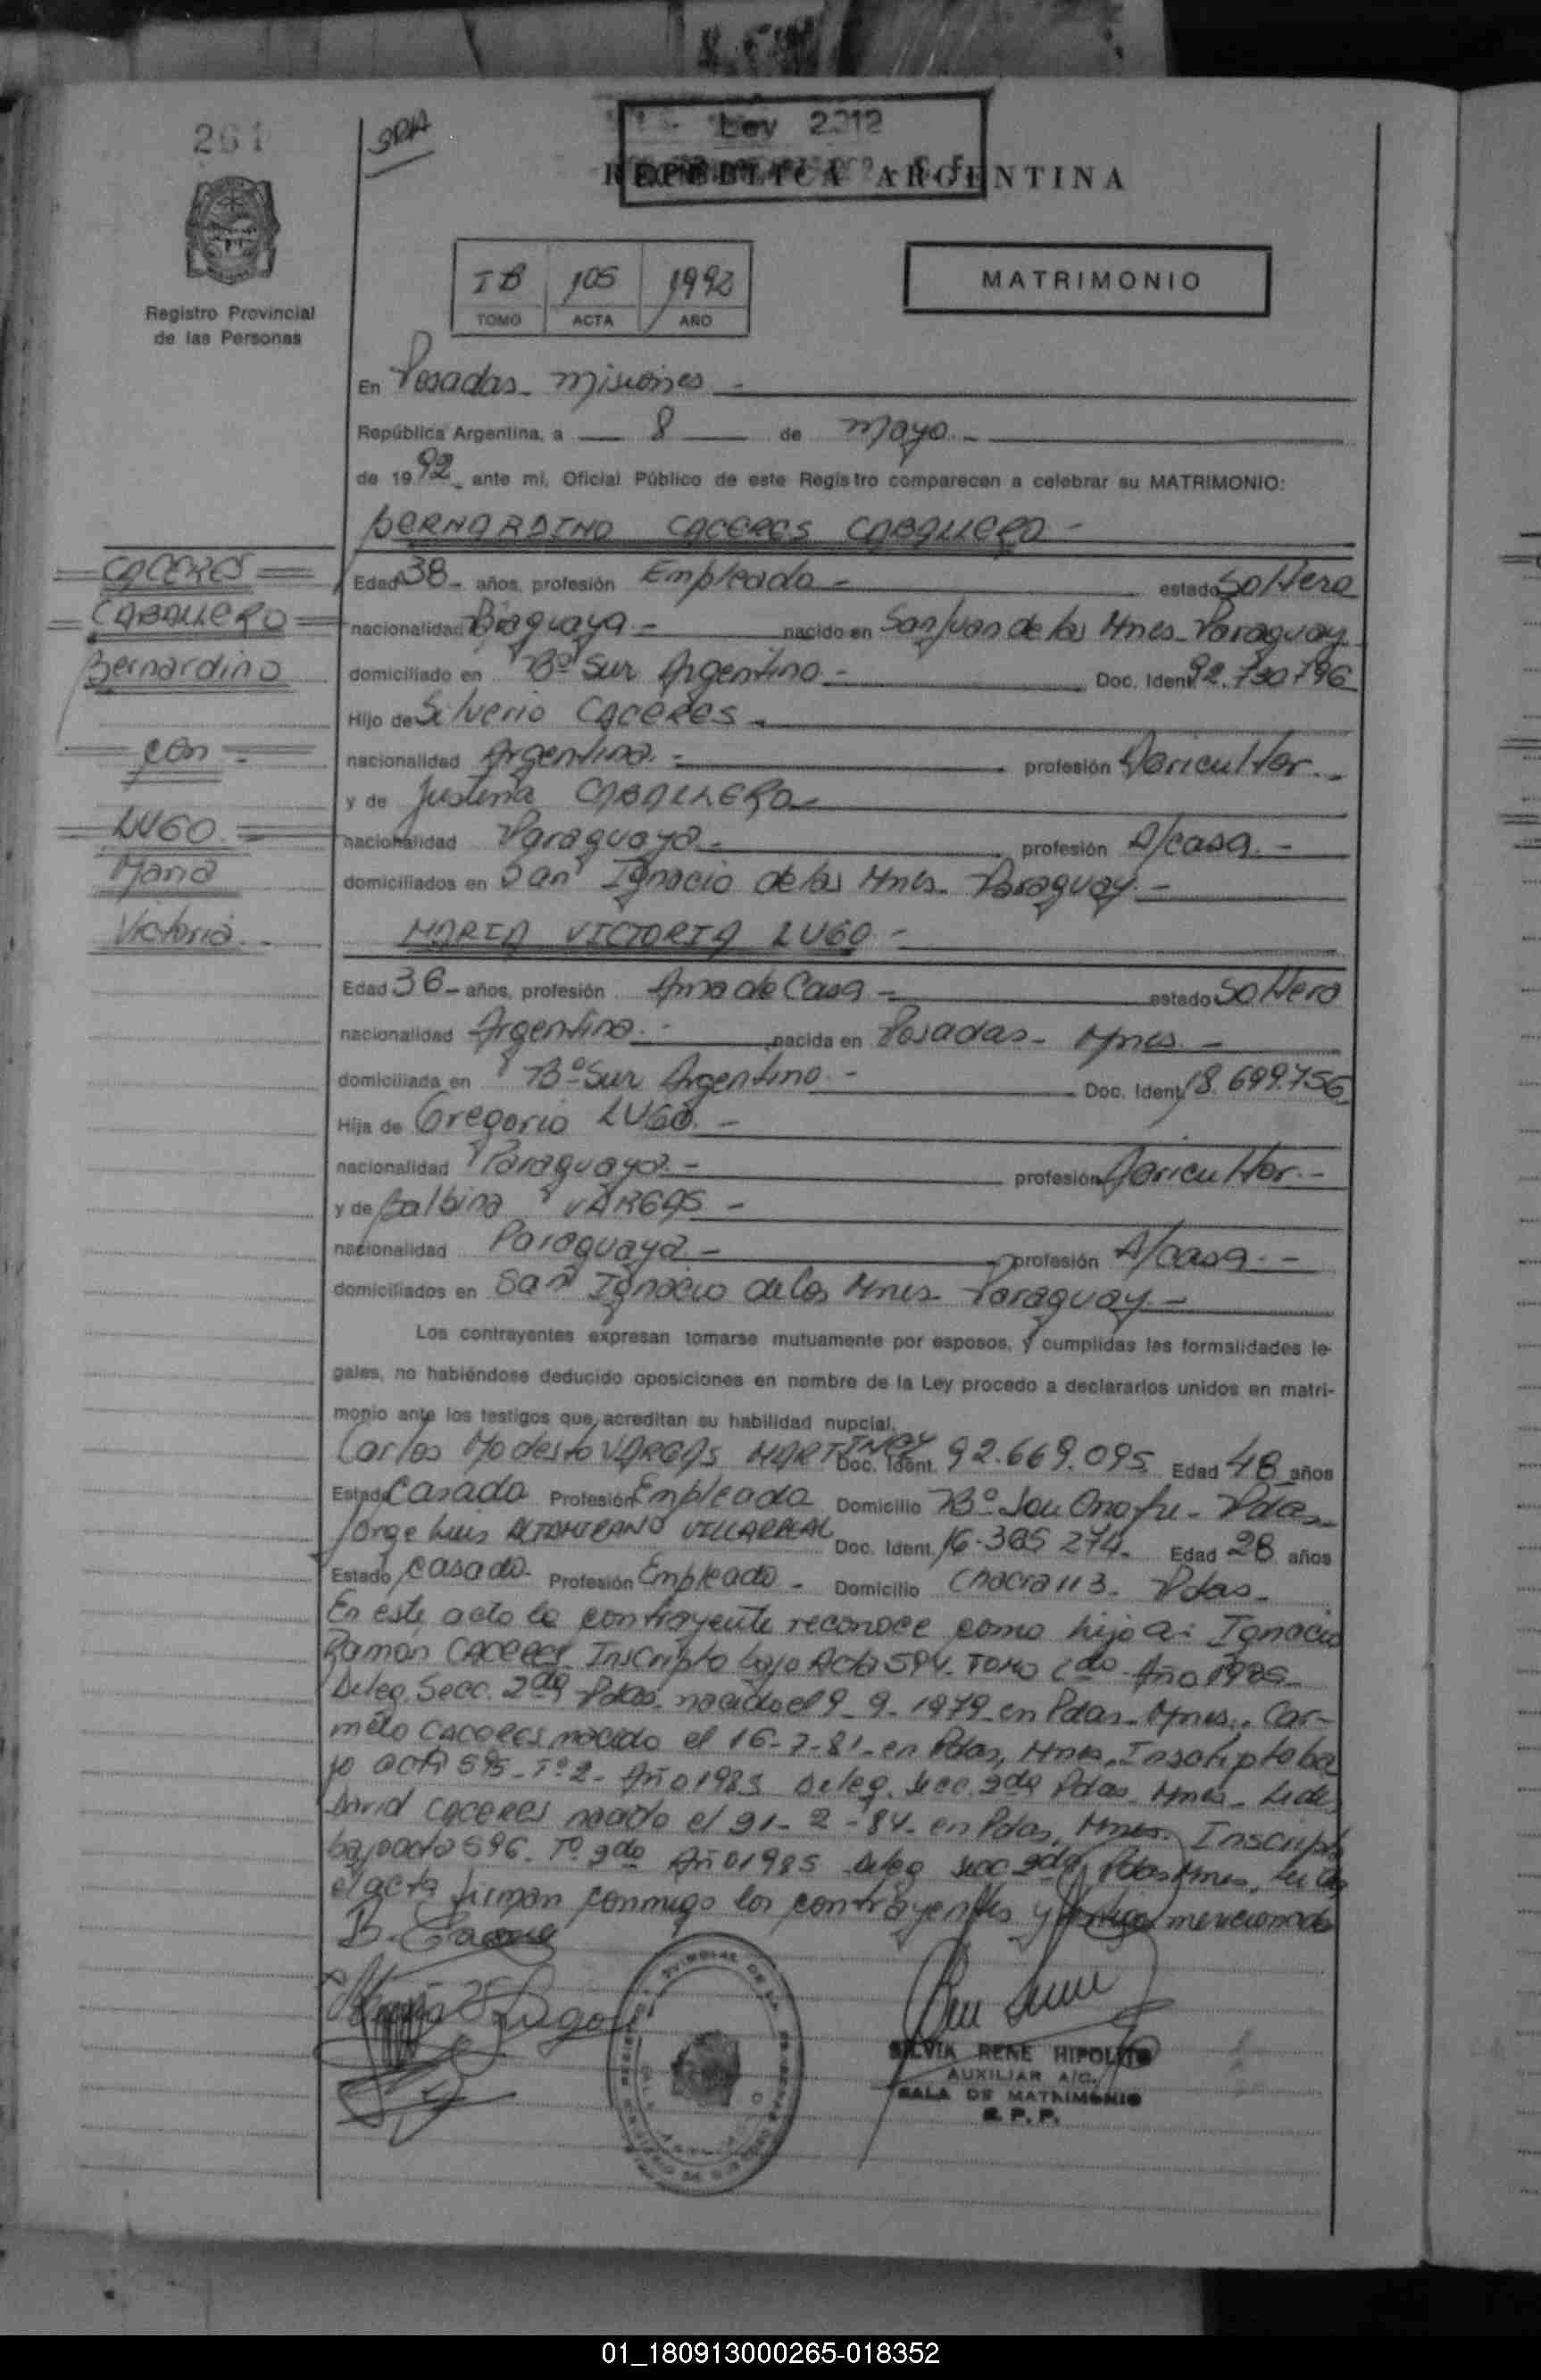 261
SRA
Ley 2312
REPUBLICA ARGENTINA
Registro Provincial
de las Personas
105 1992
TOMO ACTA AÑO
MATRIMONIO
En Posadas - Misiones -
República Argentina, a 8 de Mayo -
de 1992 ante mi, Oficial Público de este Registro comparecen a celebrar su MATRIMONIO:
BERNARDINO CACERES CABALLERO -
CACERES
CABALLERO
Bernardino
con
LUGO
Maria
Victoria
Edad 38 - años, profesión Empleado - estado Soltero
nacionalidad Paraguaya - nacido en San Juan de las Mnes - Paraguay
domiciliado en Bº Sur Argentino - Doc. Ident. 92.730.796
Hijo de Silverio CACERES -
nacionalidad Argentina - profesión Agricultor -
y de Justina CABALLERO -
nacionalidad Paraguaya - profesión A/casa -
domiciliados en San Ignacio de las Mnes - Paraguay -
MARIA VICTORIA LUGO -
Edad 36 - años, profesión Ama de Casa - estado Soltera
nacionalidad Argentina - nacida en Posadas - Mnes -
domiciliada en Bº Sur Argentino - Doc. Ident. 18.699.756
Hija de Gregorio LUGO -
nacionalidad Paraguaya - profesión Agricultor -
y de Balbina VARGAS -
nacionalidad Paraguaya - profesión A/casa -
domiciliados en San Ignacio de las Mnes - Paraguay -
Los contrayentes expresan tomarse mutuamente por esposos, y cumplidas las formalidades le-
gales, no habiéndose deducido oposiciones en nombre de la Ley procedo a declararlos unidos en matri-
monio ante los testigos que acreditan su habilidad nupcial.
Carlos Modesto VARGAS MARTINEZ Doc. Ident. 92.669.095 Edad 48 años
Estado Casado Profesión Empleado Domicilio Bº San Onofre - Pdas -
Jorge Luis ALTAMIRANO VILLARREAL Doc. Ident. 16.365 274 - Edad 28 años
Estado Casado - Profesión Empleado - Domicilio Chacra 113 - Pdas -
En este acto la contrayente reconoce como hijo a: Ignacio
Ramón CACERES Inscripto bajo Acta 594 - Tomo 2do - Año 1985 -
Deleg. Secc. 2da Pdas - nacido el 9-9-1979 - en Pdas - Mnes. Car-
melo CACERES nacido el 16-7-81 - en Pdas, Mnes, Inscripto ba
jo acta 595 - Tº 2 - Año 1985 Deleg. Secc. 2da Pdas - Mnes -
David CACERES nacido el - 2 - 84 - en Pdas, Mnes. Inscripto
bajo acta 596 - Tº 2do Año 1985 Deleg Secc 2da Pdas Mnes,
el acta firman conmigo los contrayentes y testigos mencionados
B. Caceres
Maria V Lugo
SILVIA RENE HIPOLITO
AUXILIAR A/C.
SALA DE MATRIMONIO
R. P. P.
01_180913000265-018352